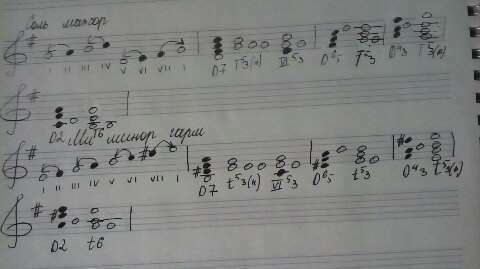 Соль мажор
I II III IV V VI VII I D7 T53(н) VI53 D65 T53 D43 T53(н)
D2 T6
Ми минор гарм
I II III IV V VI VII I D7 t53(н) VI53 D65 t53 D43 t53(н)
D2 t6